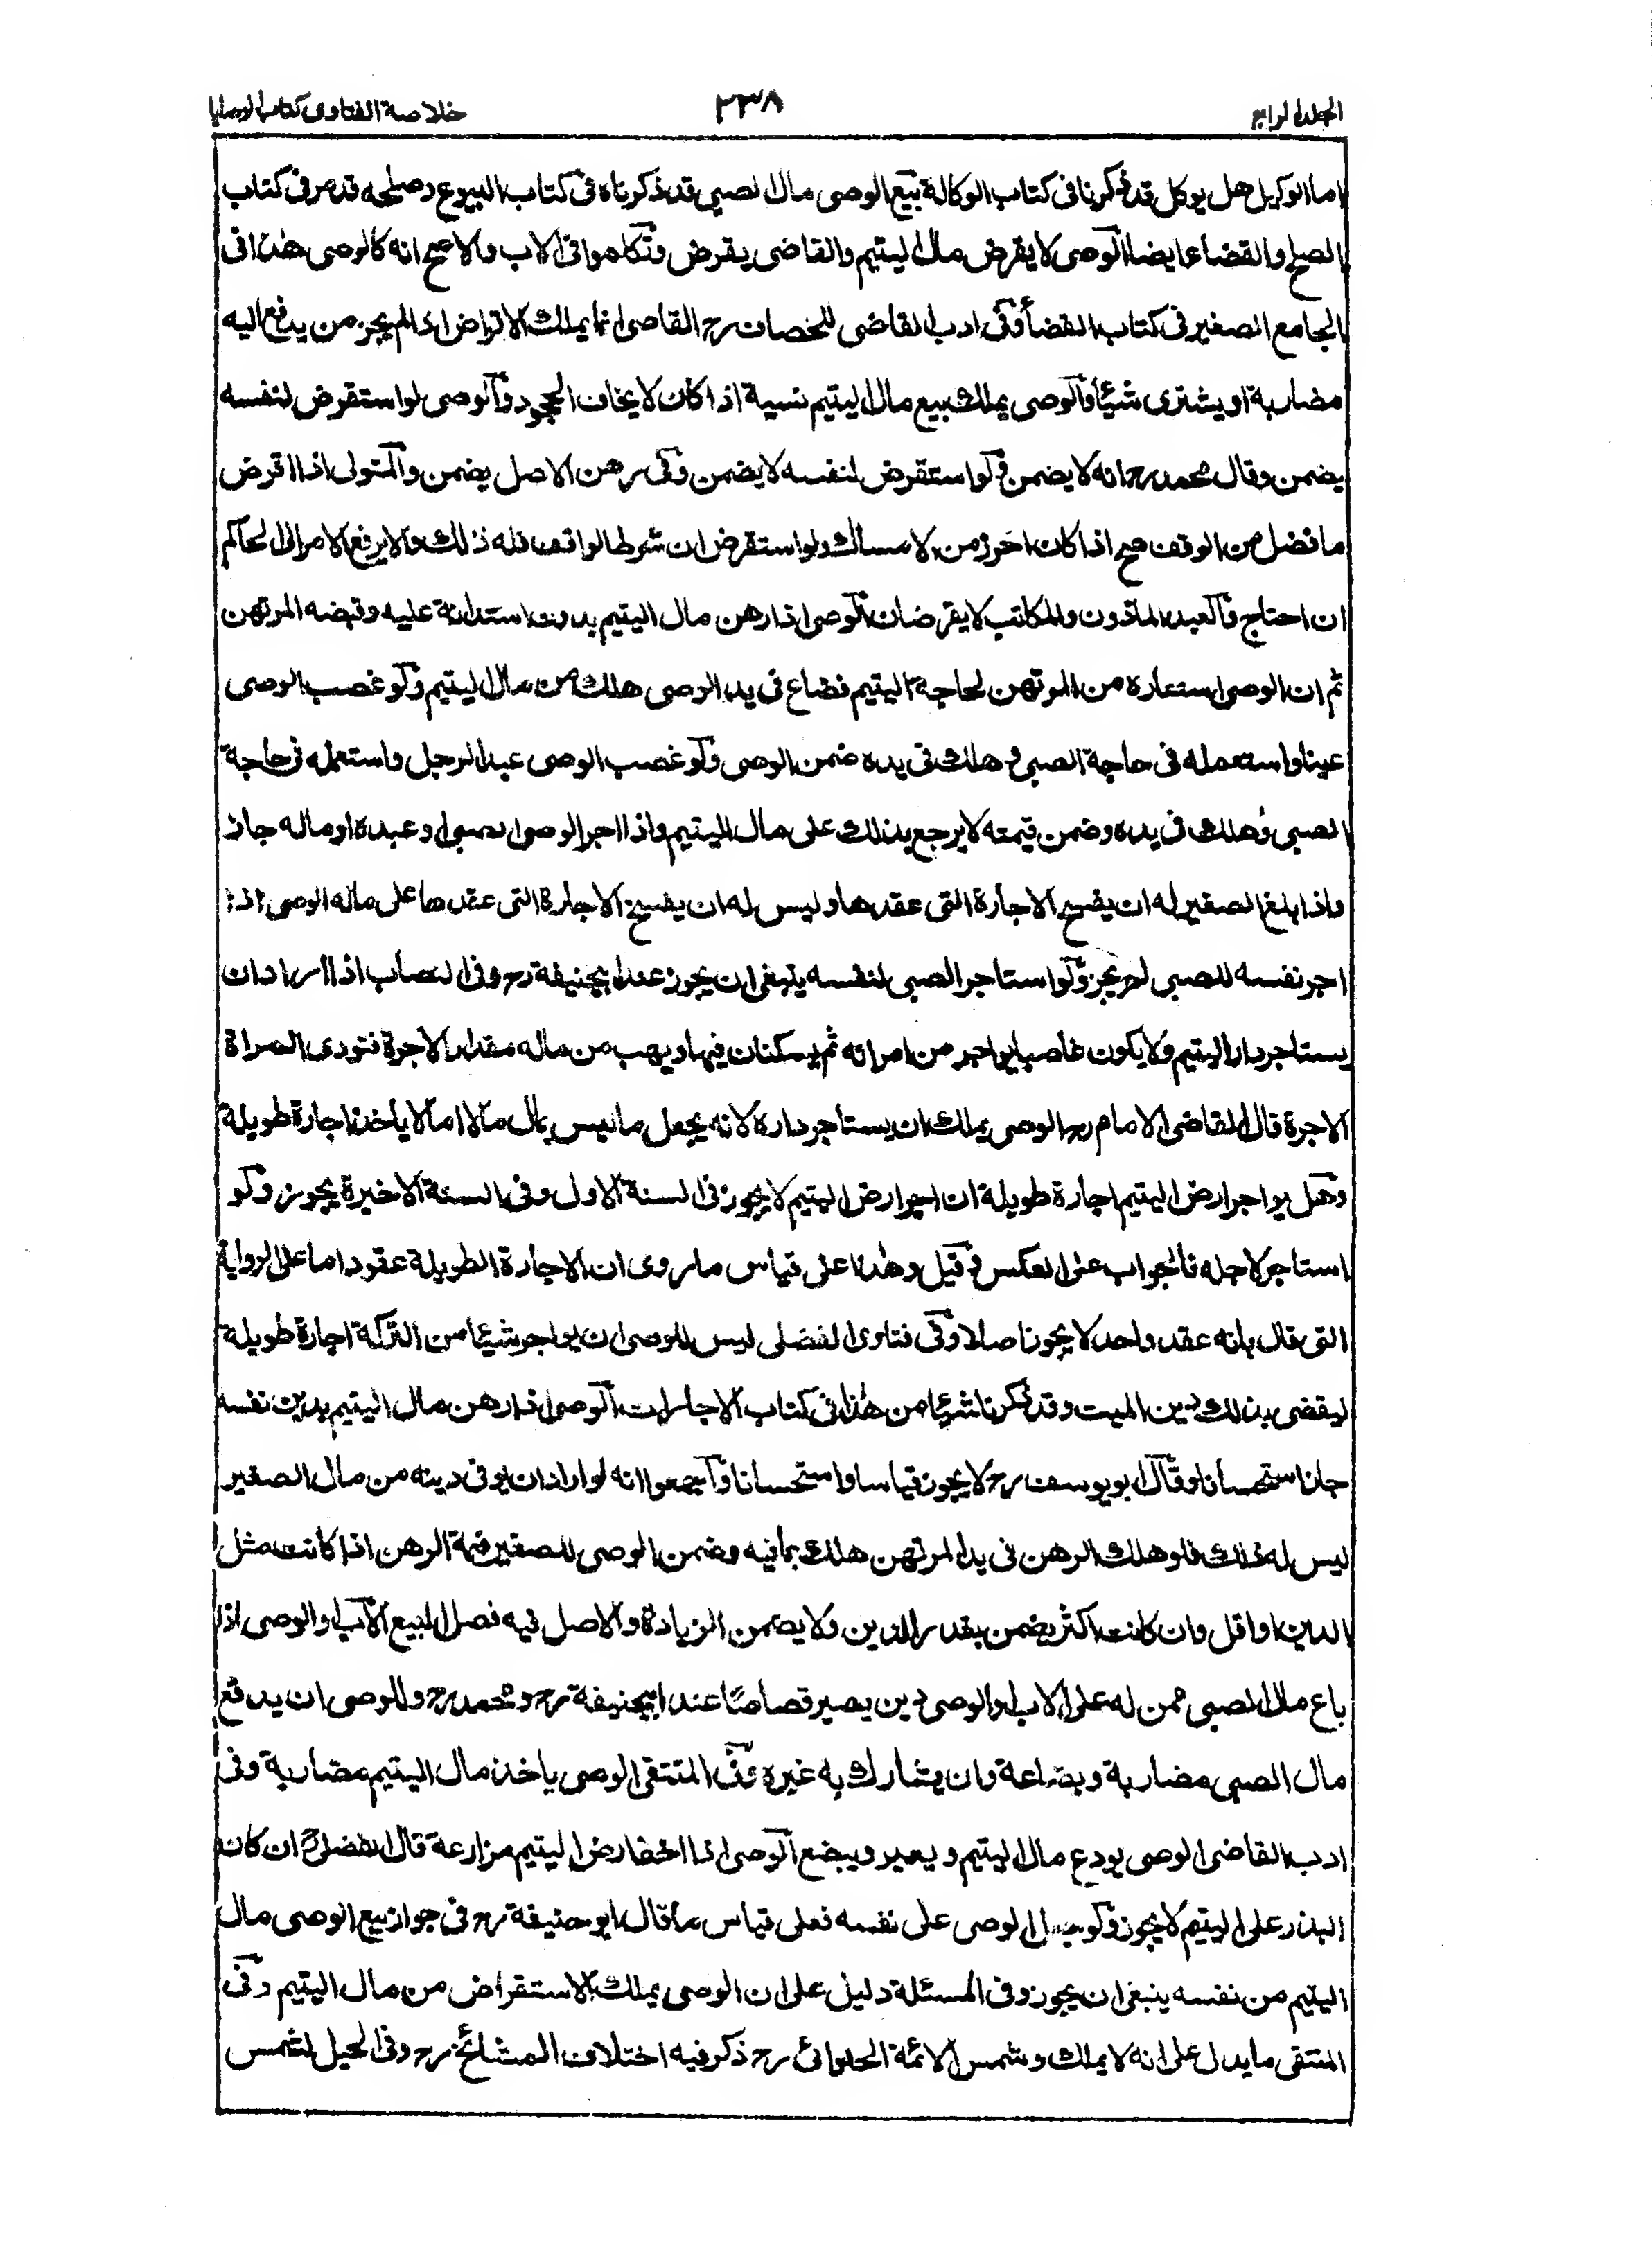 الجلد الرابع ٢٣٨ خلاصة الفتاوى كتاب الوصايا
اما الوكيل هل يوكل قد ذكرنا فى كتاب الوكالة بيع الوصى مال الصبي قد ذكرناه فى كتاب البيوع وصلحه قد مر فى كتاب
الصلح والقضاء ايضا الوصى لا يقرض مال اليتيم والقاضى يقرض وتكلموا فى الاب والاصح انه كالوصى هذا فى
الجامع الصغير فى كتاب القضأ وفى ادب القاضى للخصاف رح القاضى انما يملك الاقراض اذا لم يجز من يدفع اليه
مضاربة او يشترى شيئا والوصى يملك بيع مال اليتيم نسية اذا كان لا يخاف الجحود والوصى لو استقرض لنفسه
يضمن وقال محمد رح انه لا يضمن ولو استقرض لنفسه لا يضمن وفى رهن الاصل يضمن والمتولى اذا اقرض
ما فضل من الوقف صح اذا كان احرز من الامساك ولو استقرض ان شرط الواقف فله ذلك والا يرفع الامر الى الحاكم
ان احتاج والعبد الماذون والمكاتب لا يقرضان الوصى اذا رهن مال اليتيم بدين استدانة عليه وقبضه المرتهن
ثم ان الوصى استعاره من المرتهن لحاجة اليتيم فضاع فى يد الوصى هلك من مال اليتيم ولو غصب الوصى
عينا واستعمله فى حاجة الصبي وهلك فى يده ضمن الوصى ولو غصب الوصى عبد الرجل واستعمله فى حاجة
الصبى وهلك فى يده وضمن قيمته لا يرجع بذلك على مال اليتيم واذا اجر الوصى الصبى او عبده او ماله جاز
واذا بلغ الصغير له ان يفسخ الاجارة التى عقدها وليس له ان يفسخ الاجارة التى عقدها على ماله الوصى اذا
اجر نفسه للصبى لم يجز ولو استاجر الصبى لنفسه ينبغى ان يجوز عند ابيحنيفة رح وفى النصاب اذا اراد ان
يستاجر دار اليتيم ولا يكون غاصبا يواجر من امراته ثم يسكنان فيها ويهب من ماله مقدار الاجرة فتودى المراة
الاجرة قال القاضى الامام رح الوصى يملك ان يستاجر داره لانه يجعل ما ليس بمال مالا اما لا ياخذ اجارة طويلة
وهل يواجر ارض اليتيم اجارة طويلة ان اجر ارض اليتيم لا يجوز فى السنة الاول وفى السنة الاخيرة يجوز ولو
استاجر لاجله فالجواب على العكس وقيل وهذا على قياس ما روى ان الاجارة الطويلة عقود اما على الرواية
التى قال بانه عقد واحد لا يجوز اصلا وفى فتاوى الفضلى ليس للوصى ان يواجر شيئا من التركة اجارة طويلة
ليقضى بذلك دين الميت وقد ذكرنا شيئا من هذا فى كتاب الاجارات الوصى اذا رهن مال اليتيم بدين نفسه
جاز استحسانا وقال ابو يوسف رح لا يجوز قياسا واستحسانا واجمعوا انه لو اراد ان يوفى دينه من مال الصغير
ليس له ذلك فلو هلك الرهن فى يد المرتهن هلك بما فيه وضمن الوصى للصغير قيمة الرهن اذا كانت مثل
الدين او اقل وان كانت اكثر يضمن بقدر الدين ولا يضمن الزيادة والاصل فيه فصل البيع الاب والوصى اذا
باع مال الصبى ممن له على الاب والوصى دين يصير قصاصا عند ابيحنيفة رح ومحمد رح وللوصى ان يدفع
مال الصبى مضاربة وبضاعة وان يشارك به غيره وفى المنتقى الوصى ياخذ مال اليتيم مضاربة وفى
ادب القاضى الوصى يودع مال اليتيم ويعير ويبضع الوصى اذا اخذ ارض اليتيم مزارعة قال الفضلى رح ان كان
البذر على اليتيم لا يجوز ولو جعل الوصى على نفسه فعلى قياس ما قال ابو حنيفة رح فى جواز بيع الوصى مال
اليتيم من نفسه ينبغى ان يجوز وفى المسئلة دليل على ان الوصى يملك الاستقراض من مال اليتيم وفى
المنتقى ما يدل على انه لا يملك وشمس الائمة الحلوائى رح ذكر فيه اختلاف المشائخ رح وفى الحيل لشمس